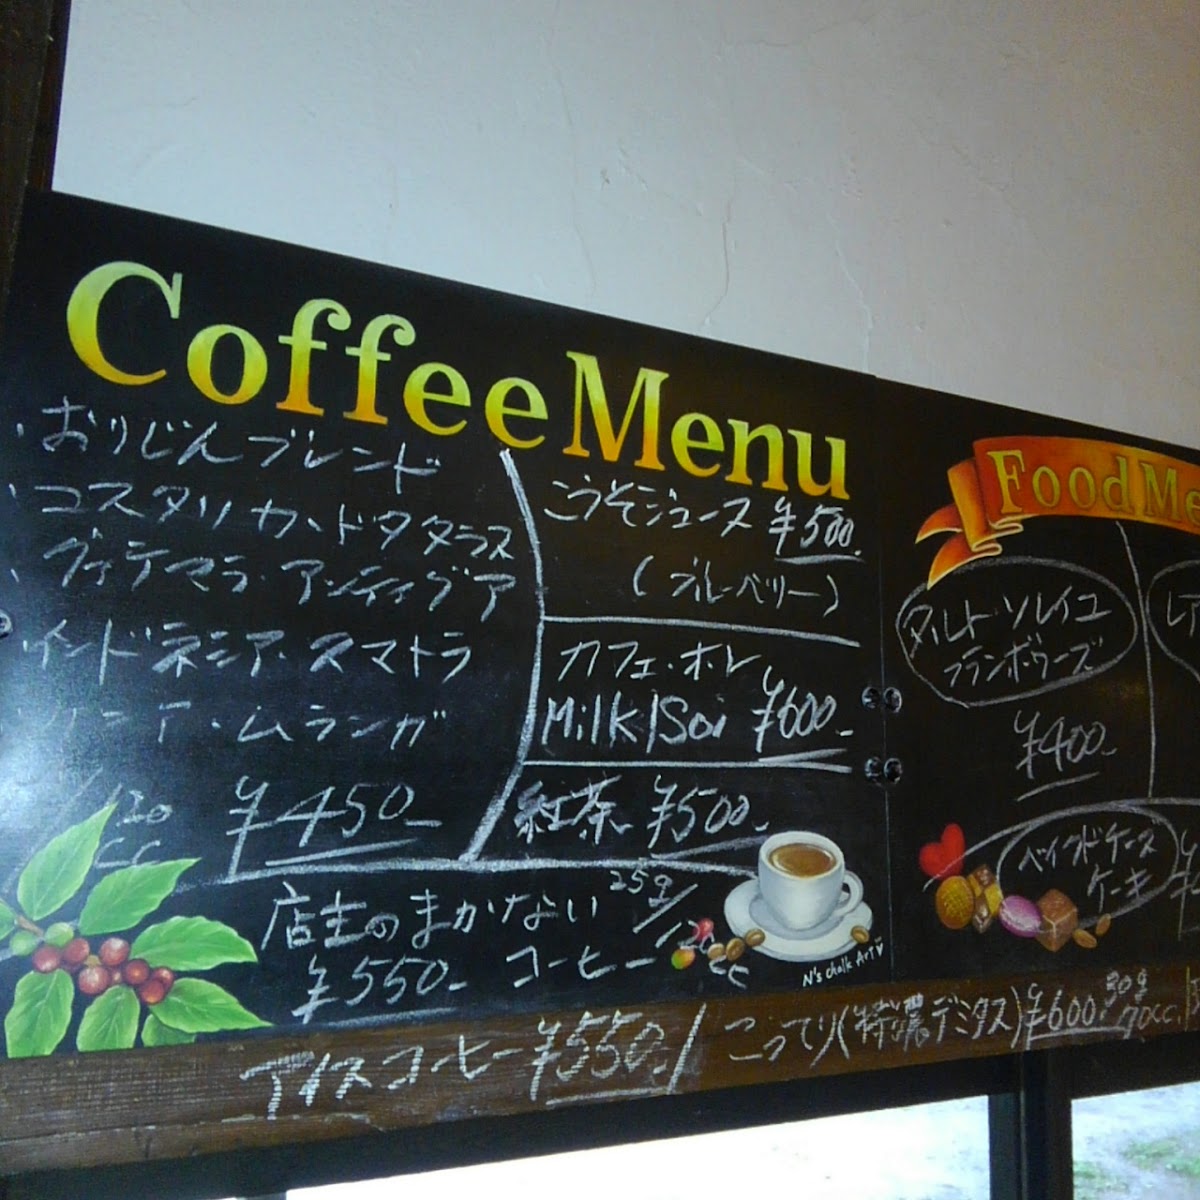 Coffee Menu
・おりじんブレンド
・コスタリカ・ドタタラス
・グァテマラ・アンティグア
・インドネシア・スマトラ
ムランガ
/120cc ¥450-
こうそジュース ¥500.
(ブルーベリー)
カフェ・オレ
Milk/Soi ¥600-
紅茶 ¥500-
店主のまかない 25g/120cc
¥550- コーヒー
N's chalk Art
アイスコーヒー ¥550-/ こってり(特濃デミタス) ¥600. 30g 70cc.
Food
タルト・ソレイユ
フランボワーズ
¥400-
ベイクドチーズ
ケーキ